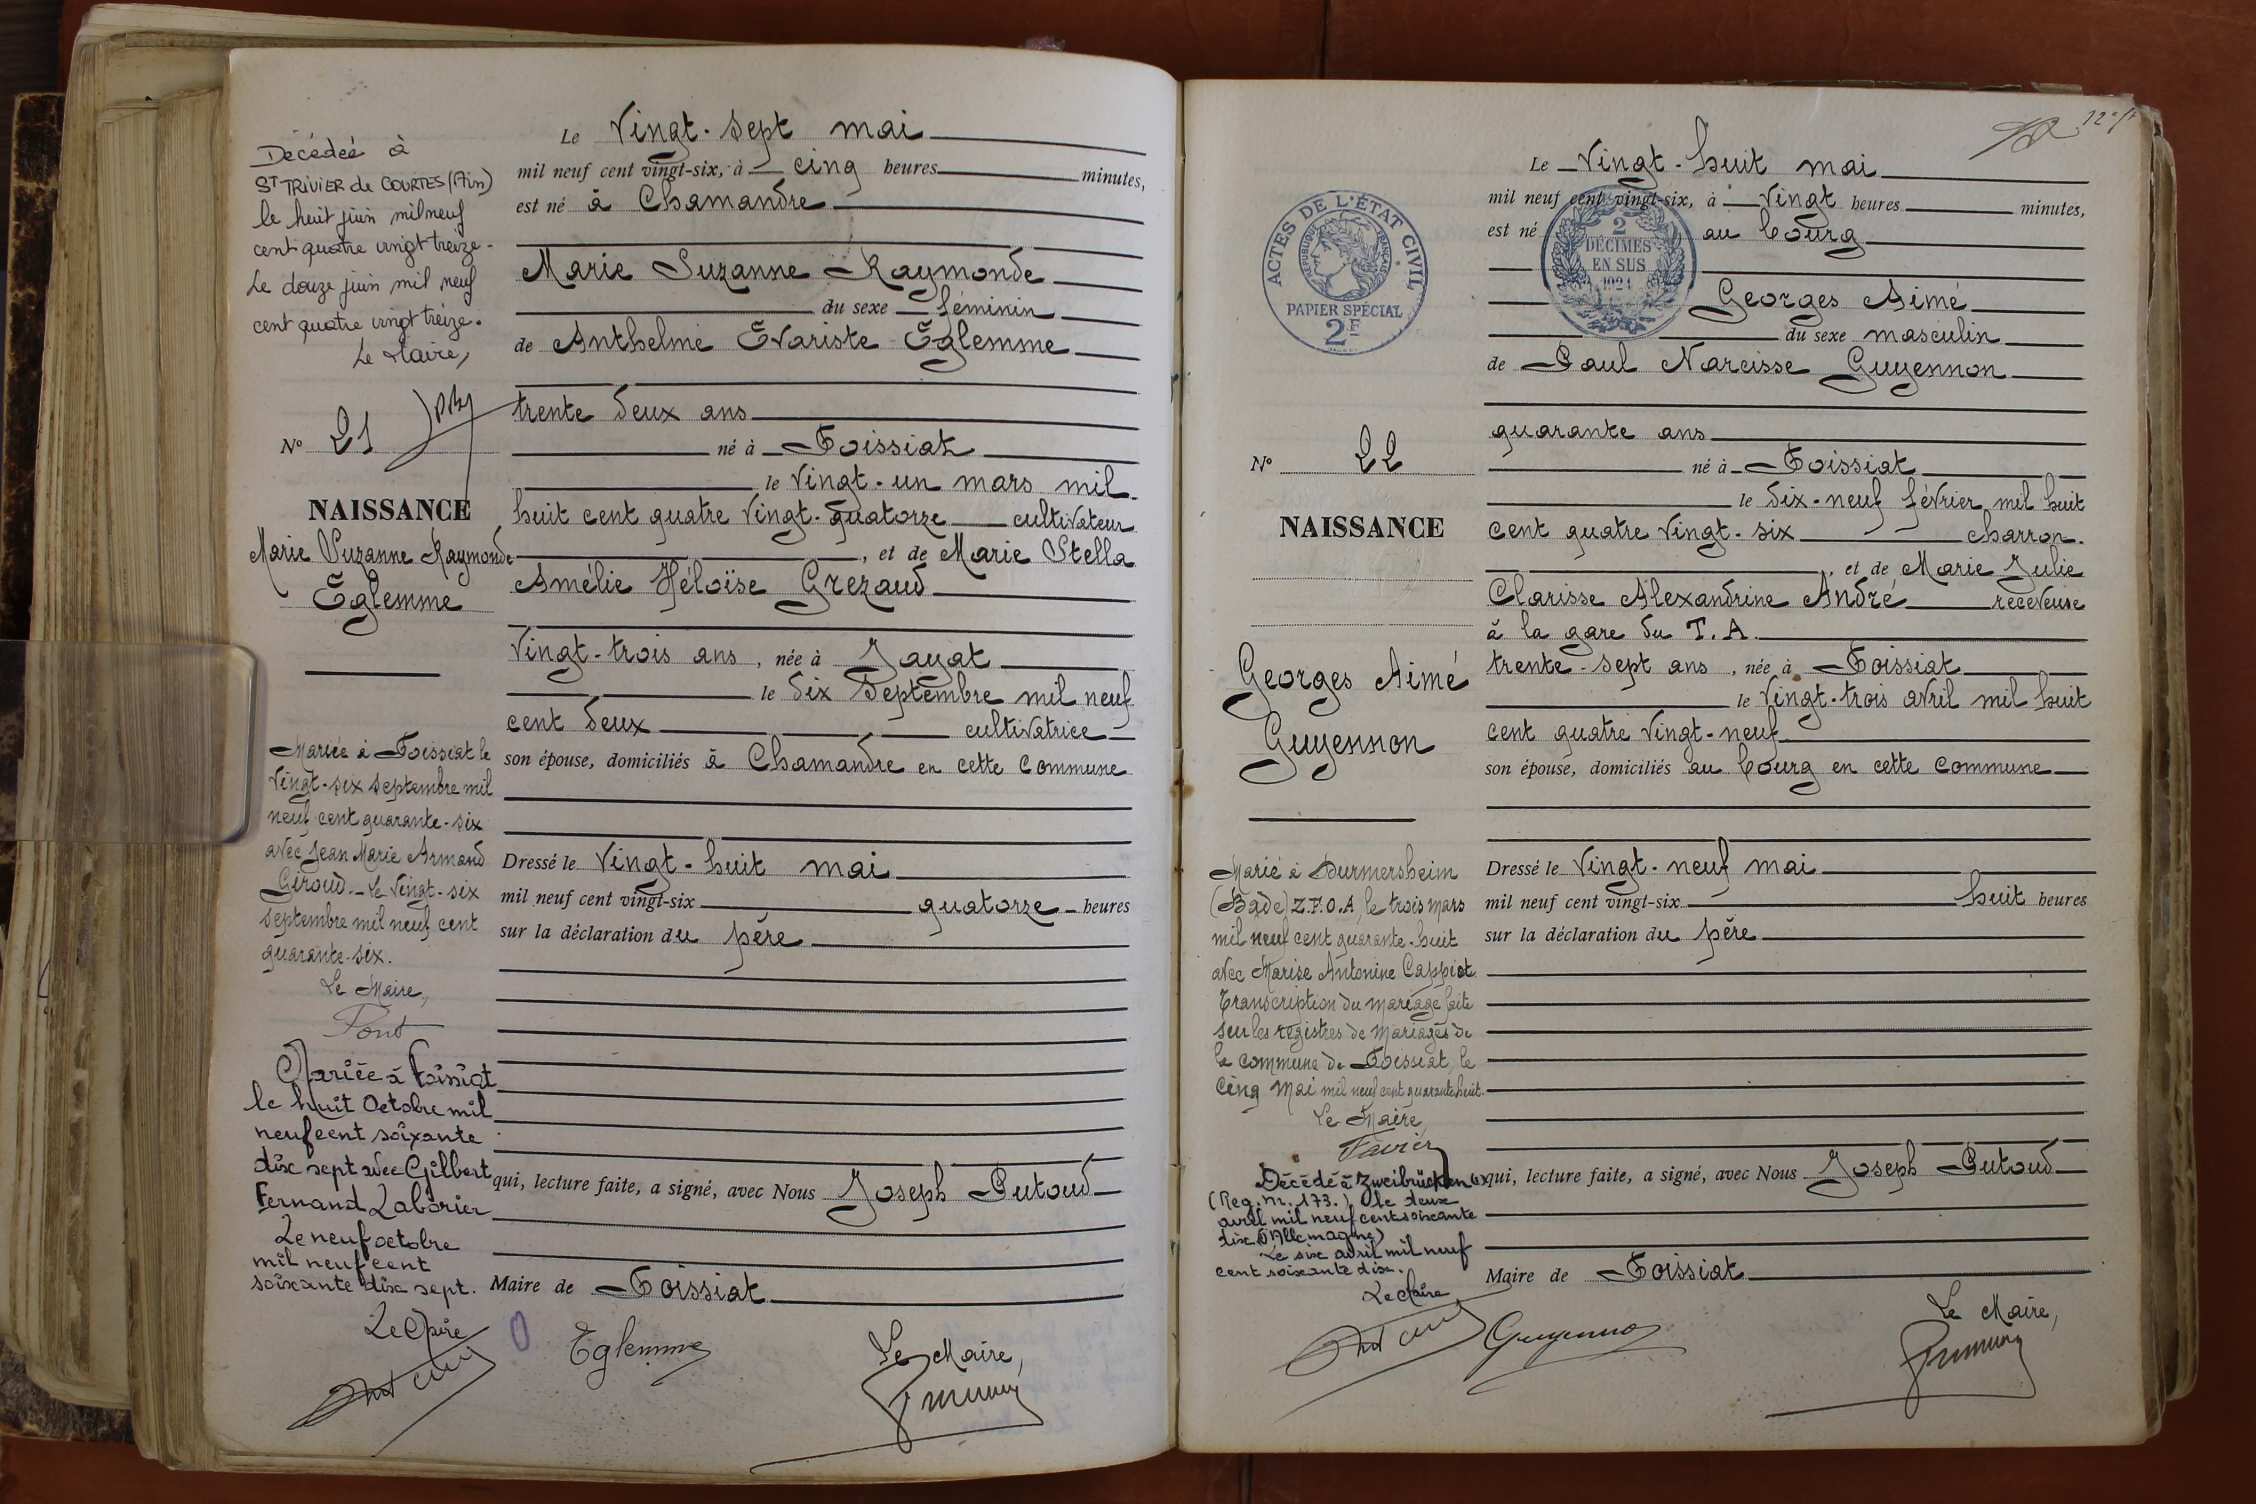 Décédée à
ST TRIVIER de COURTES (Ain)
le huit juin mil neuf
cent quatre vingt treize -
Le douze juin mil neuf
cent quatre vingt treize.
Le Maire,
N° 21
NAISSANCE
Marie Suzanne Raymonde
Eglemme
Mariée à Foissiat le
vingt-six septembre mil
neuf cent quarante-six
avec Jean Marie Armand
Giroud. - Le vingt-six
septembre mil neuf cent
quarante-six.
Le Maire,
Pont
Mariée à Foissiat
le huit Octobre mil
neuf cent soixante
dix sept avec Gilbert
Fernand Laborier
Le neuf octobre
mil neuf cent
soixante dix sept.
Le Maire
Le Vingt-sept mai
mil neuf cent vingt-six, à cinq heures minutes,
est né à Chamandre
Marie Suzanne Raymonde
du sexe féminin
de Anthelme Evariste Eglemme
trente deux ans
né à Foissiat
le vingt-un mars mil
huit cent quatre vingt-quatorze cultivateur
, et de Marie Stella
Amélie Héloïse Grezaud
vingt-trois ans, née à Jayat
le dix Septembre mil neuf
cent deux cultivatrice
son épouse, domiciliés à Chamandre en cette commune
Dressé le vingt-huit mai
mil neuf cent vingt-six quatorze heures
sur la déclaration du père
qui, lecture faite, a signé, avec Nous Joseph Putoud
Maire de Foissiat
Eglemme
Le Maire,
12
ACTES DE L'ÉTAT CIVIL
RÉPUBLIQUE FRANÇAISE
PAPIER SPÉCIAL
2F
2
DÉCIMES
EN SUS
1921
N° 22
NAISSANCE
Georges Aimé
Guyennon
Marié à Durmersheim
(Bade) Z.F.O.A, le trois mars
mil neuf cent quarante-huit
avec Marise Antonine Cappiot
Transcription du mariage faite
sur les registres de mariages de
la commune de Foissiat, le
cinq mai mil neuf cent quarante huit.
Le Maire,
Favier
Décédé à Zweibrücken
(Reg. Nr. 173.) le deux
avril mil neuf cent soixante
dix (Allemagne)
Le six avril mil neuf
cent soixante dix.
Le Maire
Le Vingt-huit mai
mil neuf cent vingt-six, à vingt heures minutes,
est né au bourg
Georges Aimé
du sexe masculin
de Paul Narcisse Guyennon
quarante ans
né à Foissiat
le dix-neuf février mil huit
cent quatre vingt-six charron.
, et de Marie Julie
Clarisse Alexandrine André receveuse
à la gare du T.A
trente-sept ans, née à Foissiat
le vingt-trois avril mil huit
cent quatre vingt-neuf
son épouse, domiciliés au bourg en cette commune
Dressé le vingt-neuf mai
mil neuf cent vingt-six huit heures
sur la déclaration du père
qui, lecture faite, a signé, avec Nous Joseph Putoud
Maire de Foissiat
Guyennon
Le Maire,